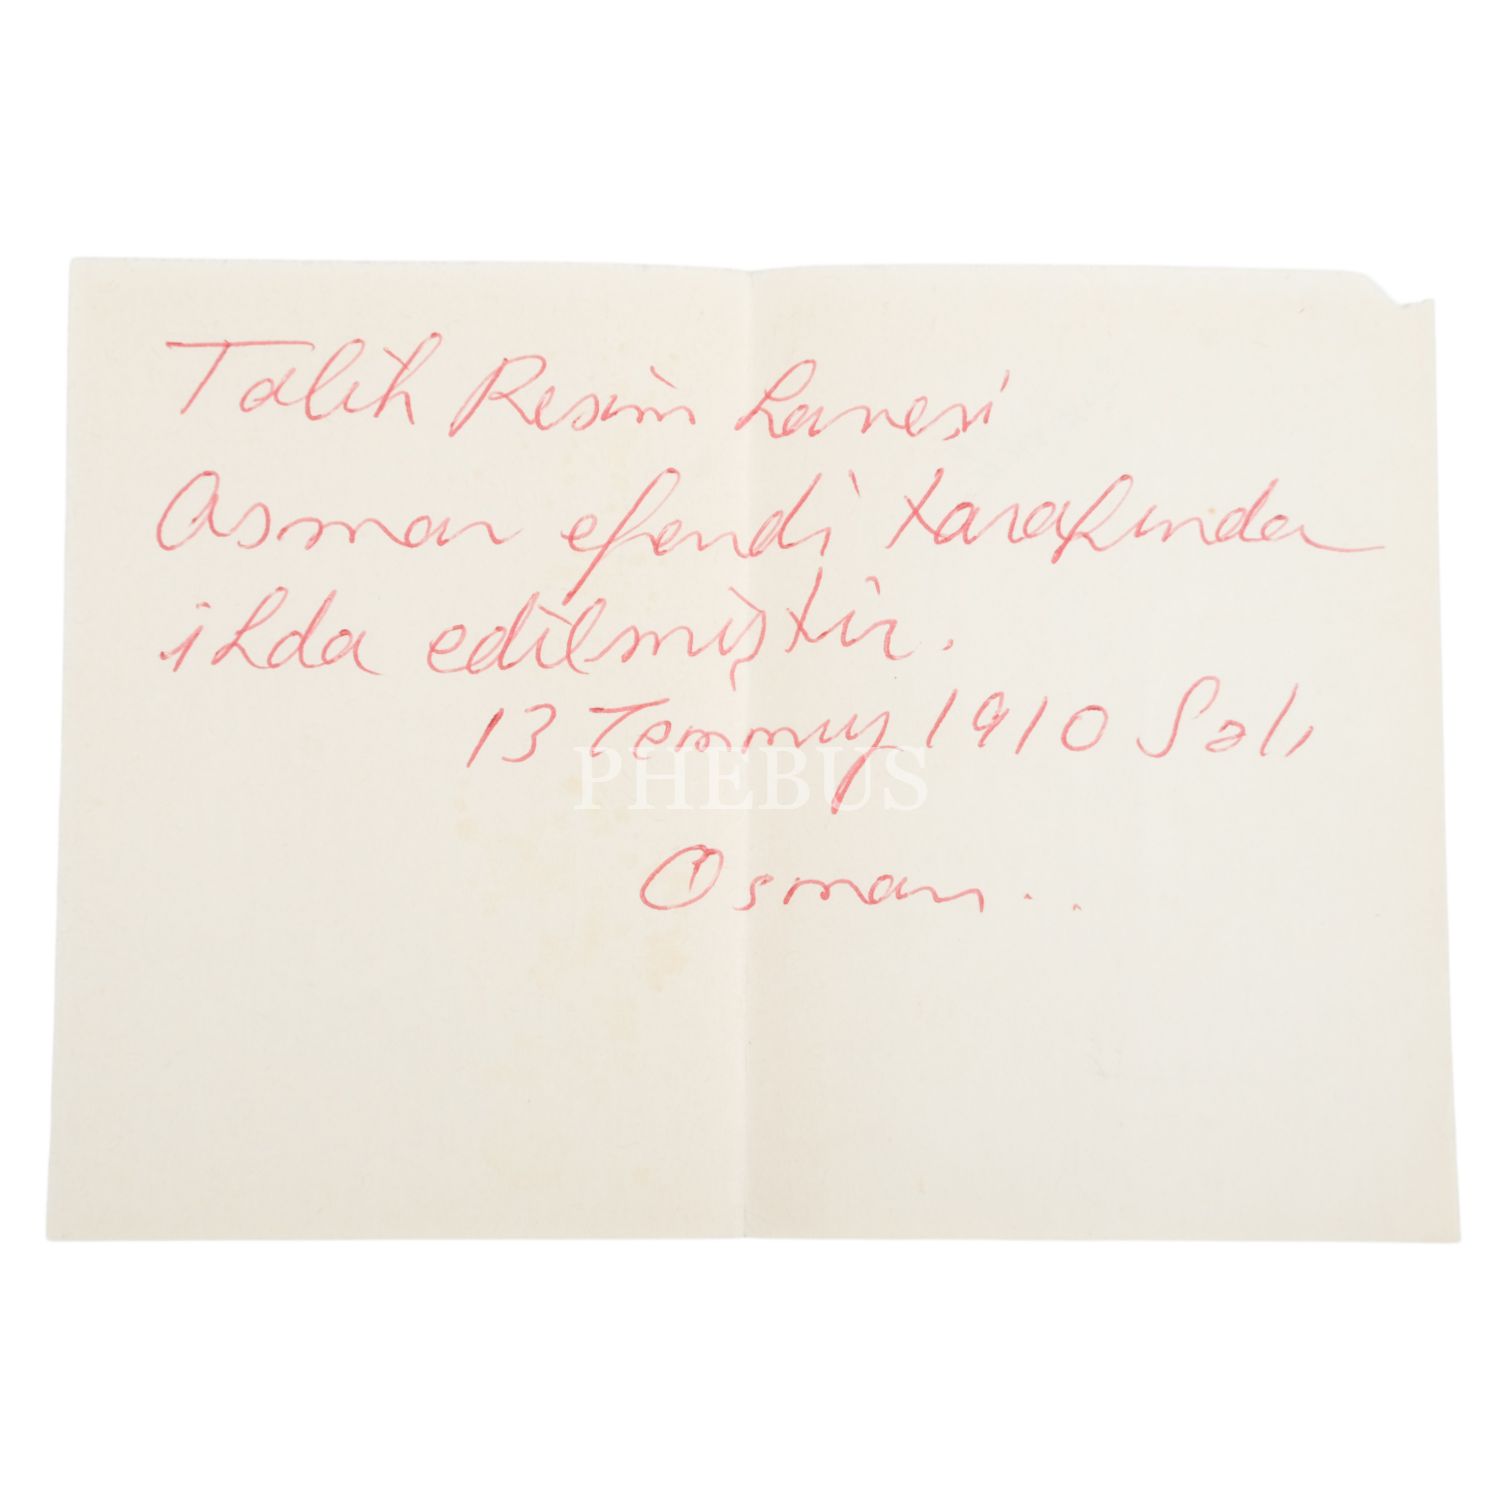 Talih Resim hanesi
Osman efendi tarafında
ihda edilmiştir.
13 Temmuz 1910 Salı
PHEBUS
Osman..